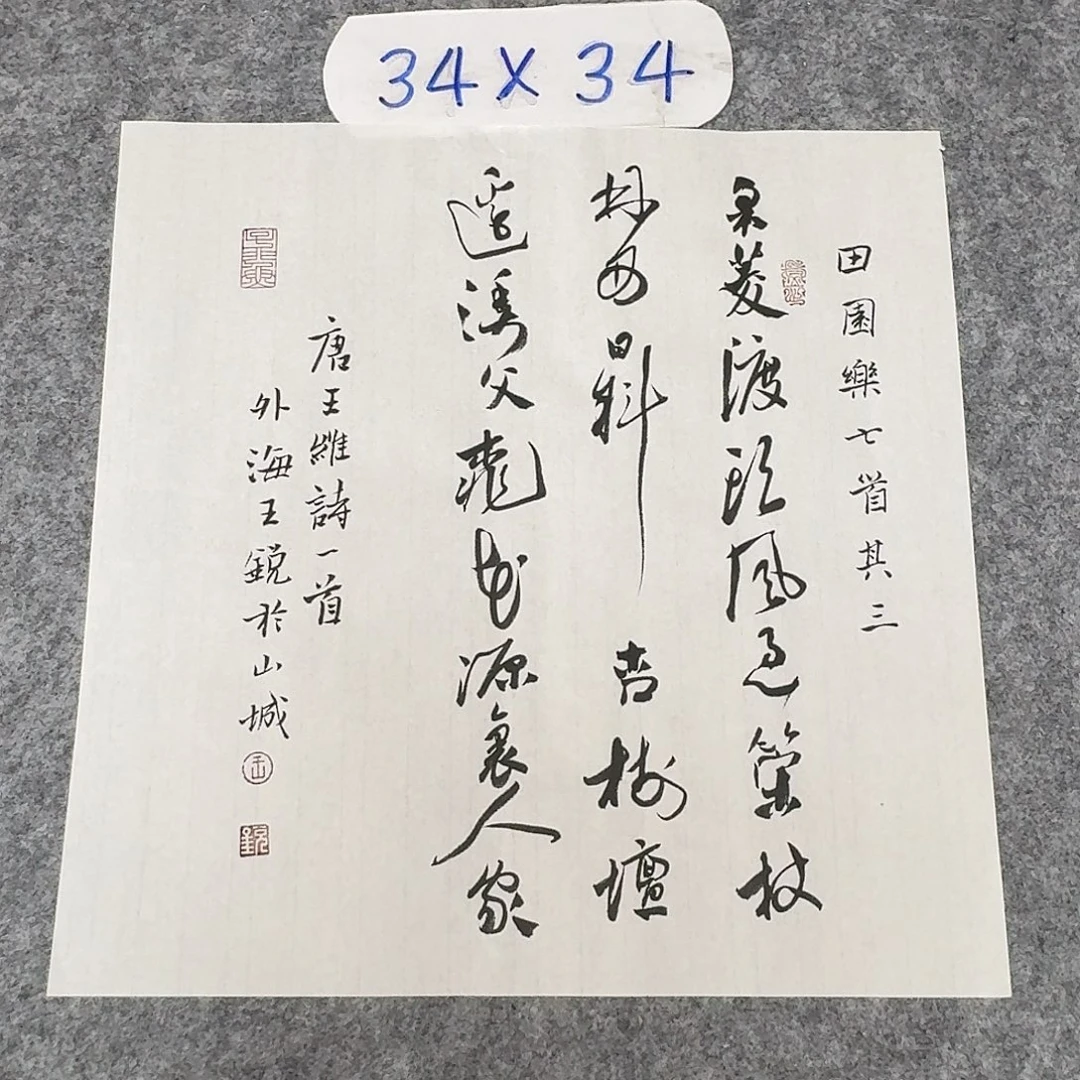 34X34
田園樂七首其三
采菱渡頭風急策杖
林西日斜杏樹壇
邊漁父桃花源裏人家
唐王維詩一首
外海王銳於山城
王